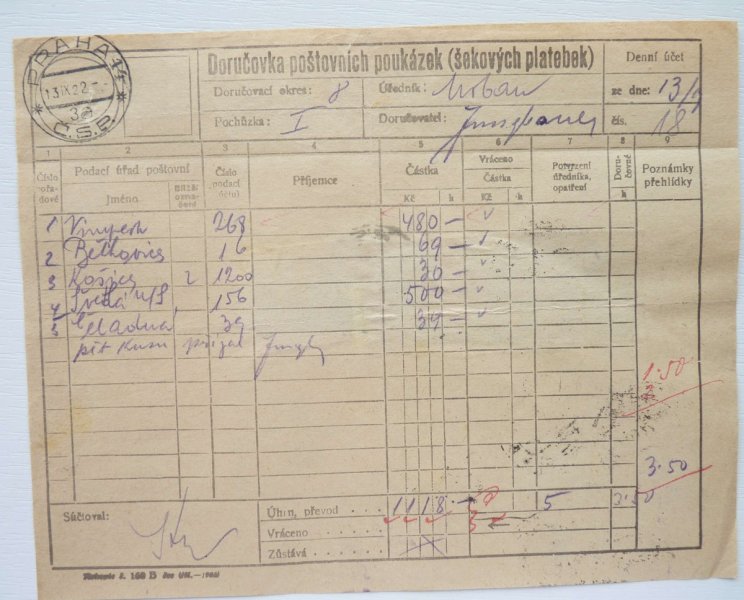 PRAHA 14
13.IX.22
3a
Č.S.P.
Doručovka poštovních poukázek (šekových platebek)
Doručovací okres: 8
Úředník: Urban
Pochůzka: I
Doručovatel:
Denní účet
ze dne: 13/9
čís. 18
1 2 3 4 5 6 7 8 9
Číslo pořadové
Podací úřad poštovní
Jméno
Bližší označení
Číslo podací
Příjemce
Částka
Kč h
Vráceno
Částka
Kč h
Potvrzení úředníka, opatření
Doručovné
h
Poznámky přehlídky
1 Vimperk 268 480 —
2 16 69 —
3 Košice 2 1200 30 —
4 156 500 —
5 Čeladná 39 39 —
pět kusů přijal
1·50
3·50
Súčtoval:
Úhrn, převod 1118 — 5 3·50
Vráceno
Zůstává